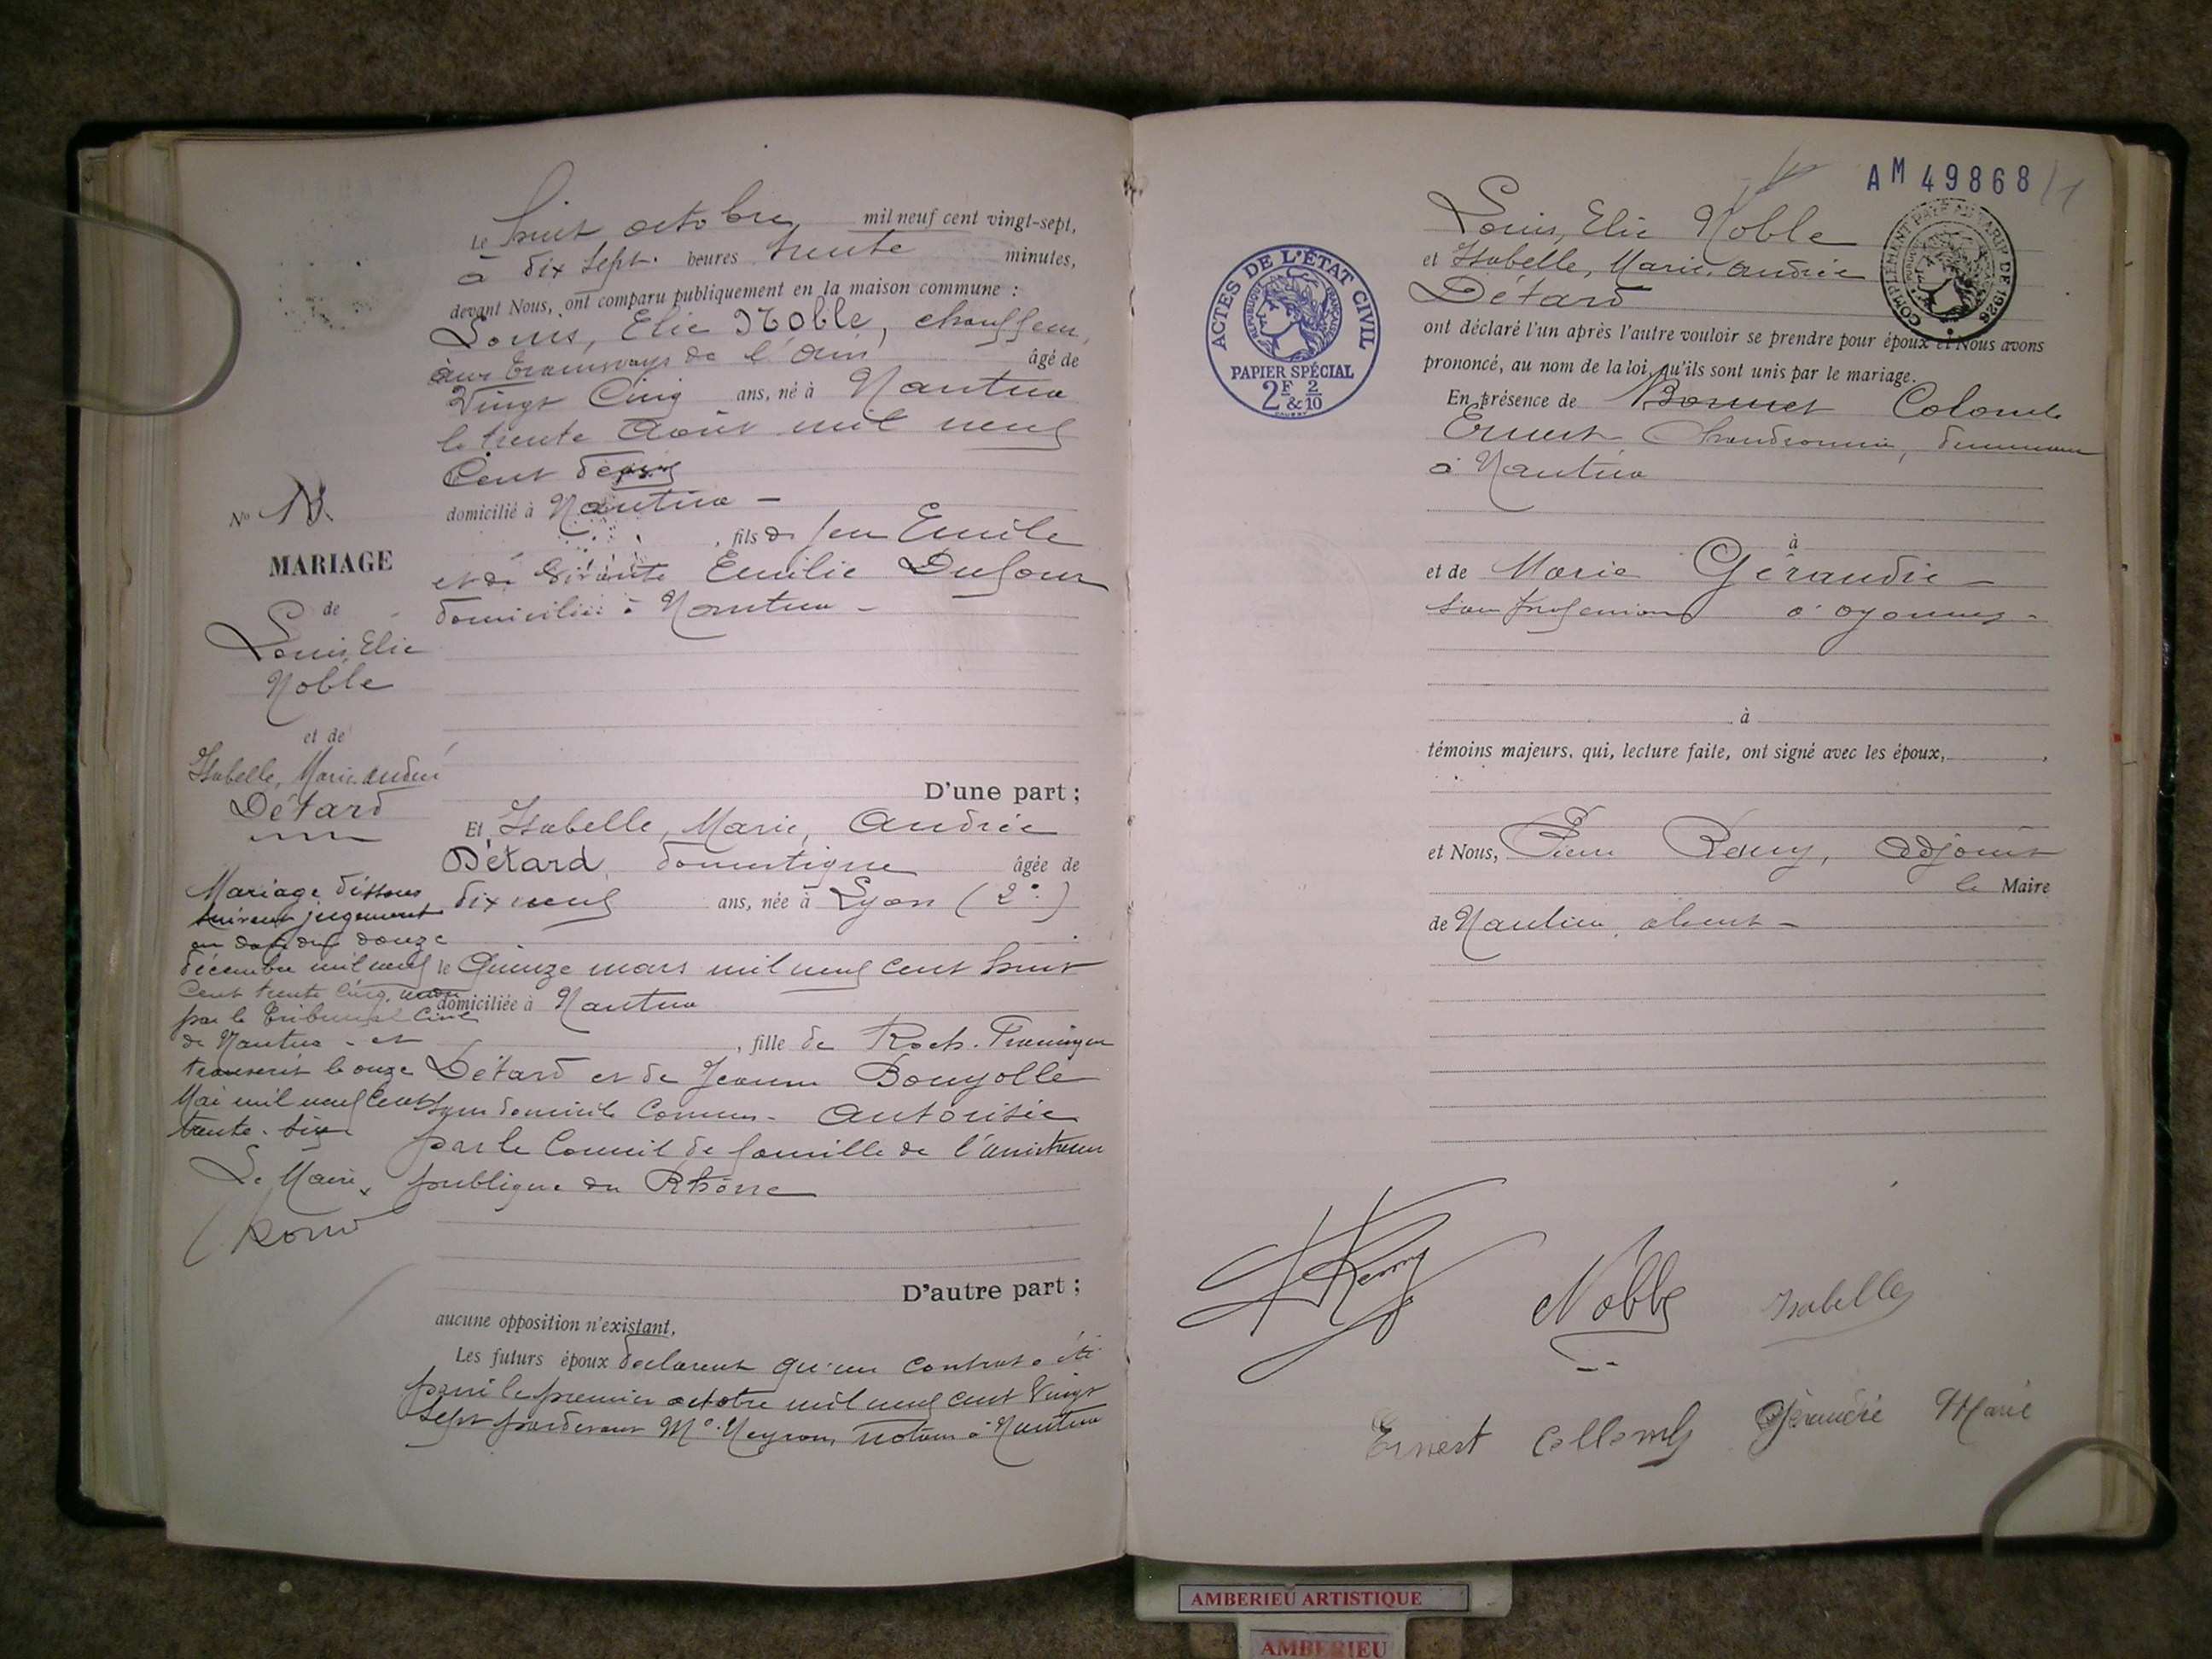 Le huit octobre mil neuf cent vingt-sept,
à dix sept heures trente minutes,
devant Nous, ont comparu publiquement en la maison commune :
Louis, Elie Noble, chauffeur
aux tramways de l'Ain âgé de
Vingt Cinq ans, né à Nantua
le trente Août mil neuf
Cent deux
domicilié à Nantua -
, fils de feu Emile
et de vivante Emilie Dufour
domiciliée à Nantua -
D'une part ;
Et Isabelle, Marie, Andrée
Détard, domestique âgée de
dix neuf ans, née à Lyon (2e)
le Quinze mars mil neuf cent huit
domiciliée à Nantua
, fille de Roch
Détard et de Jeanne Bouyolle
sans domicile connu - Autorisée
par le Conseil de famille de l'assistance
publique du Rhône
D'autre part ;
aucune opposition n'existant,
Les futurs époux déclarent qu'un contrat a été
passé le premier octobre mil neuf cent vingt
sept pardevant Me Neyron, notaire à Nantua
No
MARIAGE
de
Louis, Elie
Noble
et de
Isabelle, Marie Andrée
Détard
Mariage dissous
suivant jugement
en date du douze
décembre mil neuf
cent trente cinq, rendu
par le Tribunal Civil
de Nantua - et
transcrit le onze
Mai mil neuf Cent
trente-six
Le Maire,
AM 49868
Louis, Elie Noble
et Isabelle, Marie, Andrée
Détard
ont déclaré l'un après l'autre vouloir se prendre pour époux et Nous avons
prononcé, au nom de la loi, qu'ils sont unis par le mariage.
En présence de Bonnet Colomb
Ernest Chaudronnier, demeurant
à Nantua
à
et de Marie Géraudie -
sans profession à Oyonnax -
à
témoins majeurs, qui, lecture faite, ont signé avec les époux,
et Nous, Pierre Remy, Adjoint
le Maire
de Nantua, absent -
ACTES DE L'ÉTAT CIVIL
RÉPUBLIQUE FRANÇAISE
PAPIER SPÉCIAL
2F & 2/10
COMPLÉMENT PAYÉ AU TARIF DE 1926
Remy Noble Isabelle
Ernest Collomb Géraudie Marie
AMBERIEU ARTISTIQUE
AMBERIEU